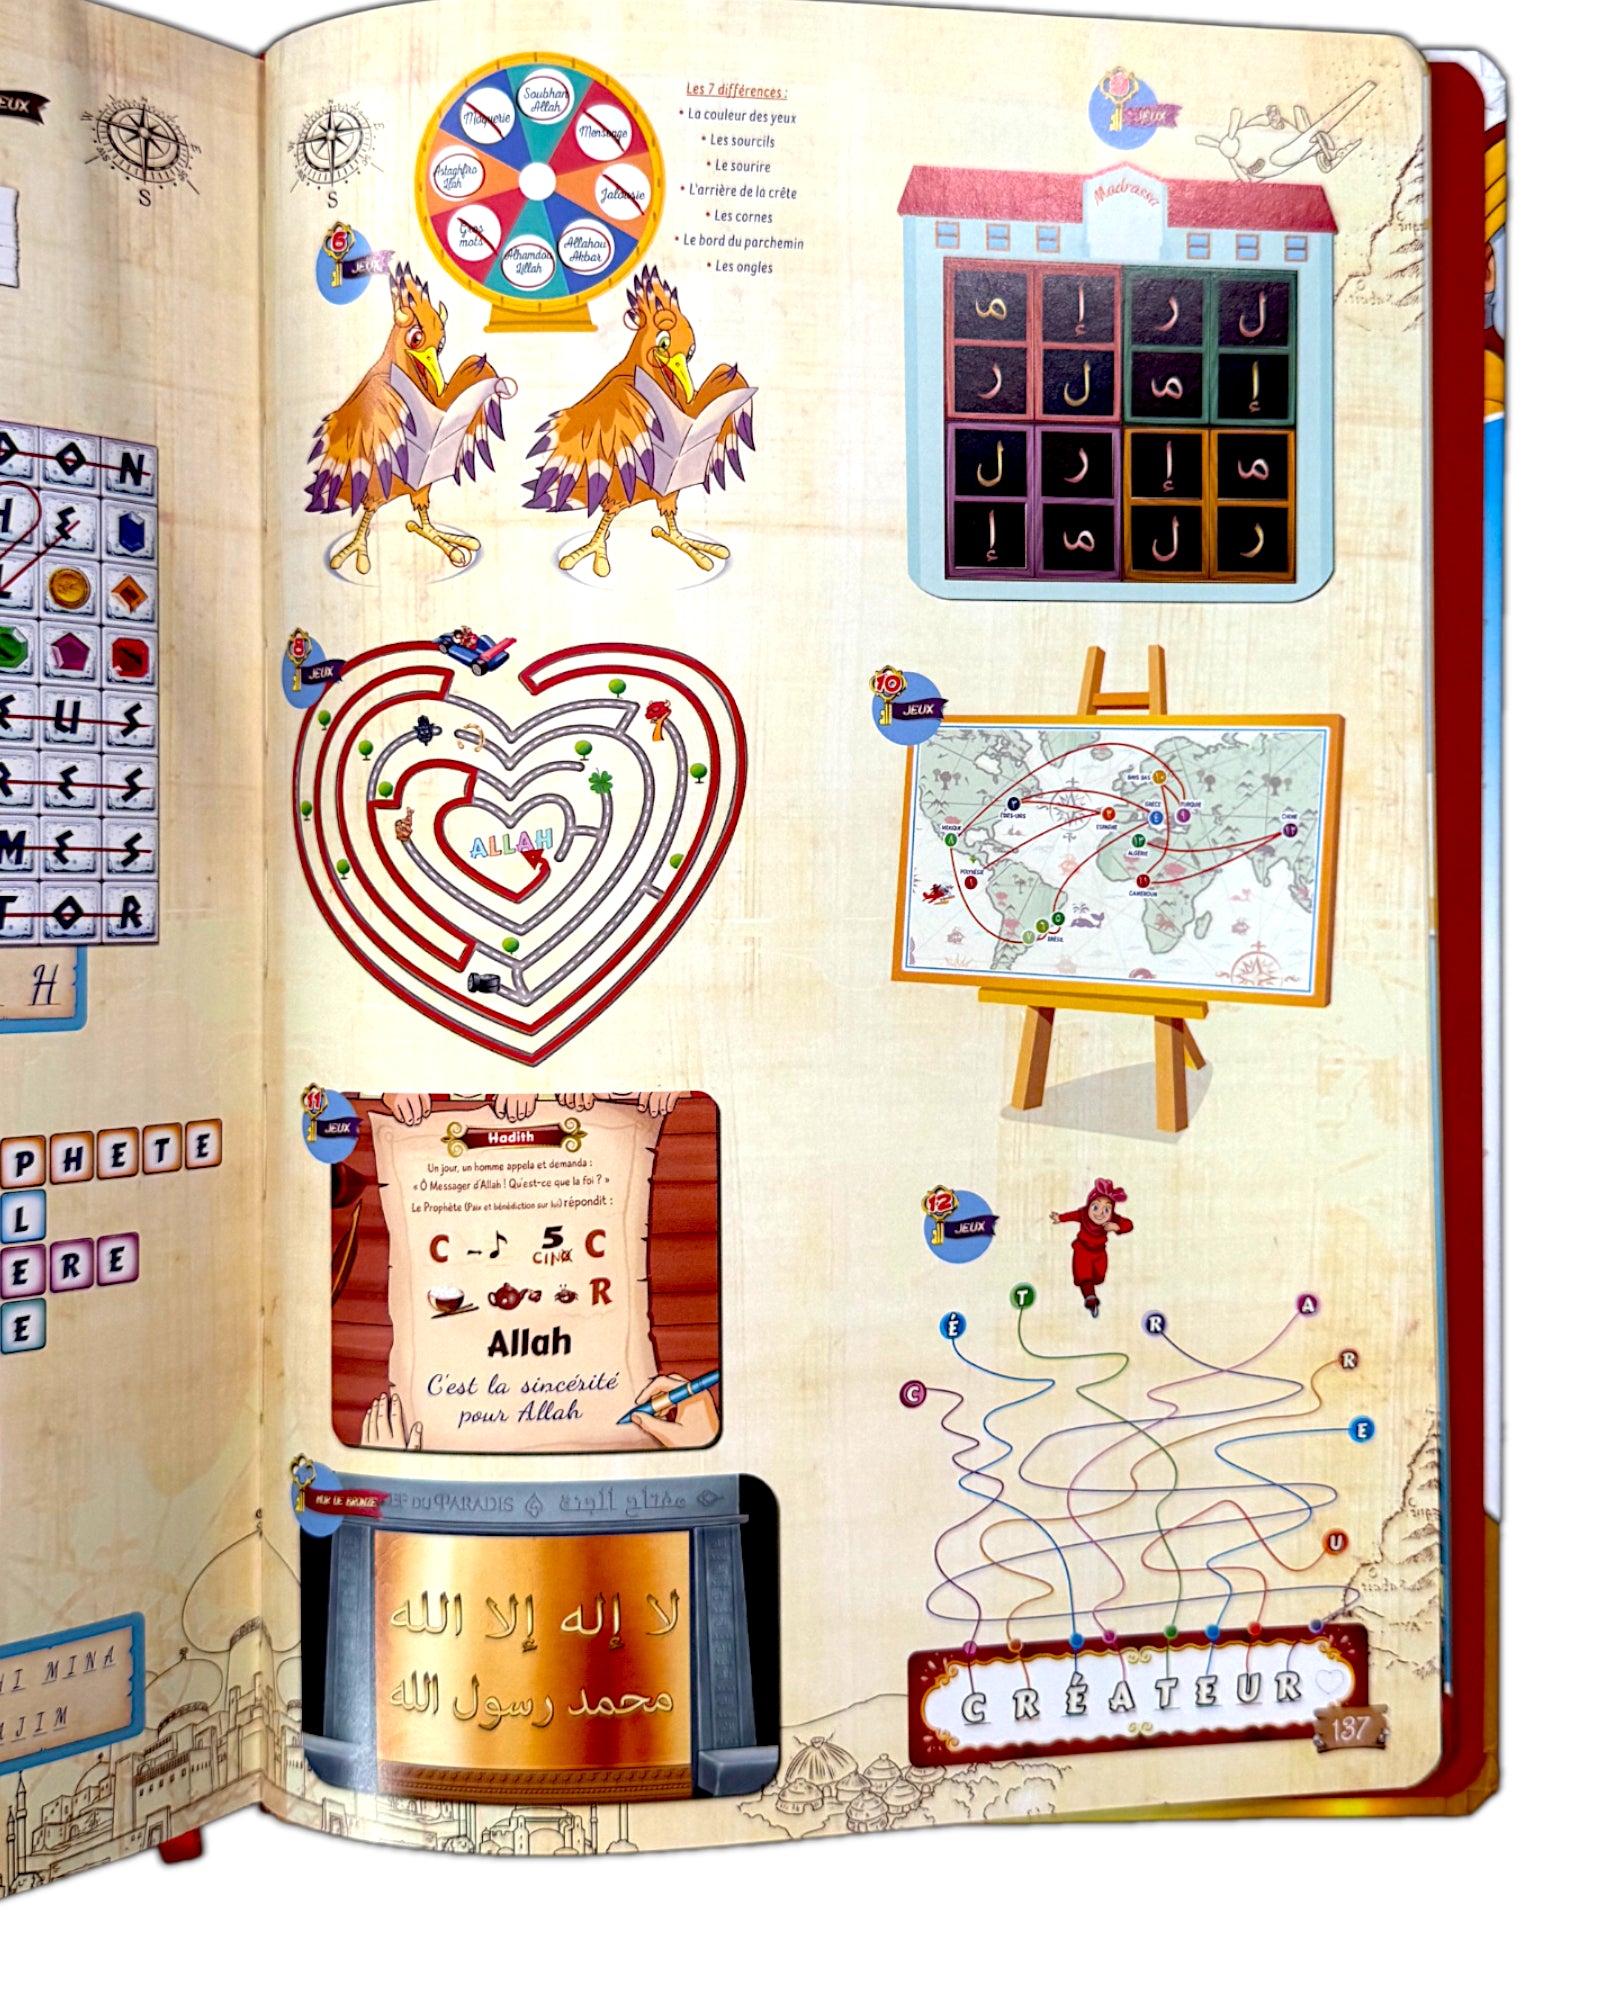 EUX
S
S
O N
H E
E U S
R E S
M E S
T O R
H
P H E T E
L
E R E
E
HI MINA
AJIM
6
JEUX
Moquerie
Soubhan
Allah
Mensonge
Jalousie
Allahou
Akbar
Alhamdou
Lillah
Gros
mots
Astaghfiro
llah
Les 7 différences :
• La couleur des yeux
• Les sourcils
• Le sourire
• L'arrière de la crête
• Les cornes
• Le bord du parchemin
• Les ongles
JEUX
Madrassa
م إ ر ل
ر ل م إ
ل ر إ م
إ م ل ر
8
JEUX
ALLAH
10
JEUX
PAYS BAS
١٠
ÉTATS-UNIS
٣
ESPAGNE
٢
GRÈCE
٤
TURQUIE
١
CHINE
١٢
MEXIQUE
٨
ALGÉRIE
١٣
POLYNÉSIE
٩
CAMEROUN
١١
٧ ٦ ٥
BRÉSIL
11
JEUX
Hadith
Un jour, un homme appela et demanda :
« Ô Messager d'Allah ! Qu'est-ce que la foi ? »
Le Prophète (Paix et bénédiction sur lui) répondit :
C 5 C
CINQ
R
Allah
C'est la sincérité
pour Allah
12
JEUX
É T R A
C R
E
U
C R É A T E U R
MUR DE BRONZE
EF DU PARADIS مفتاح الجنة
لا إله إلا الله
محمد رسول الله
137